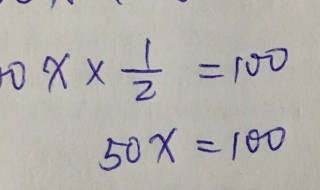 0x × 1/2 = 100
50x = 100